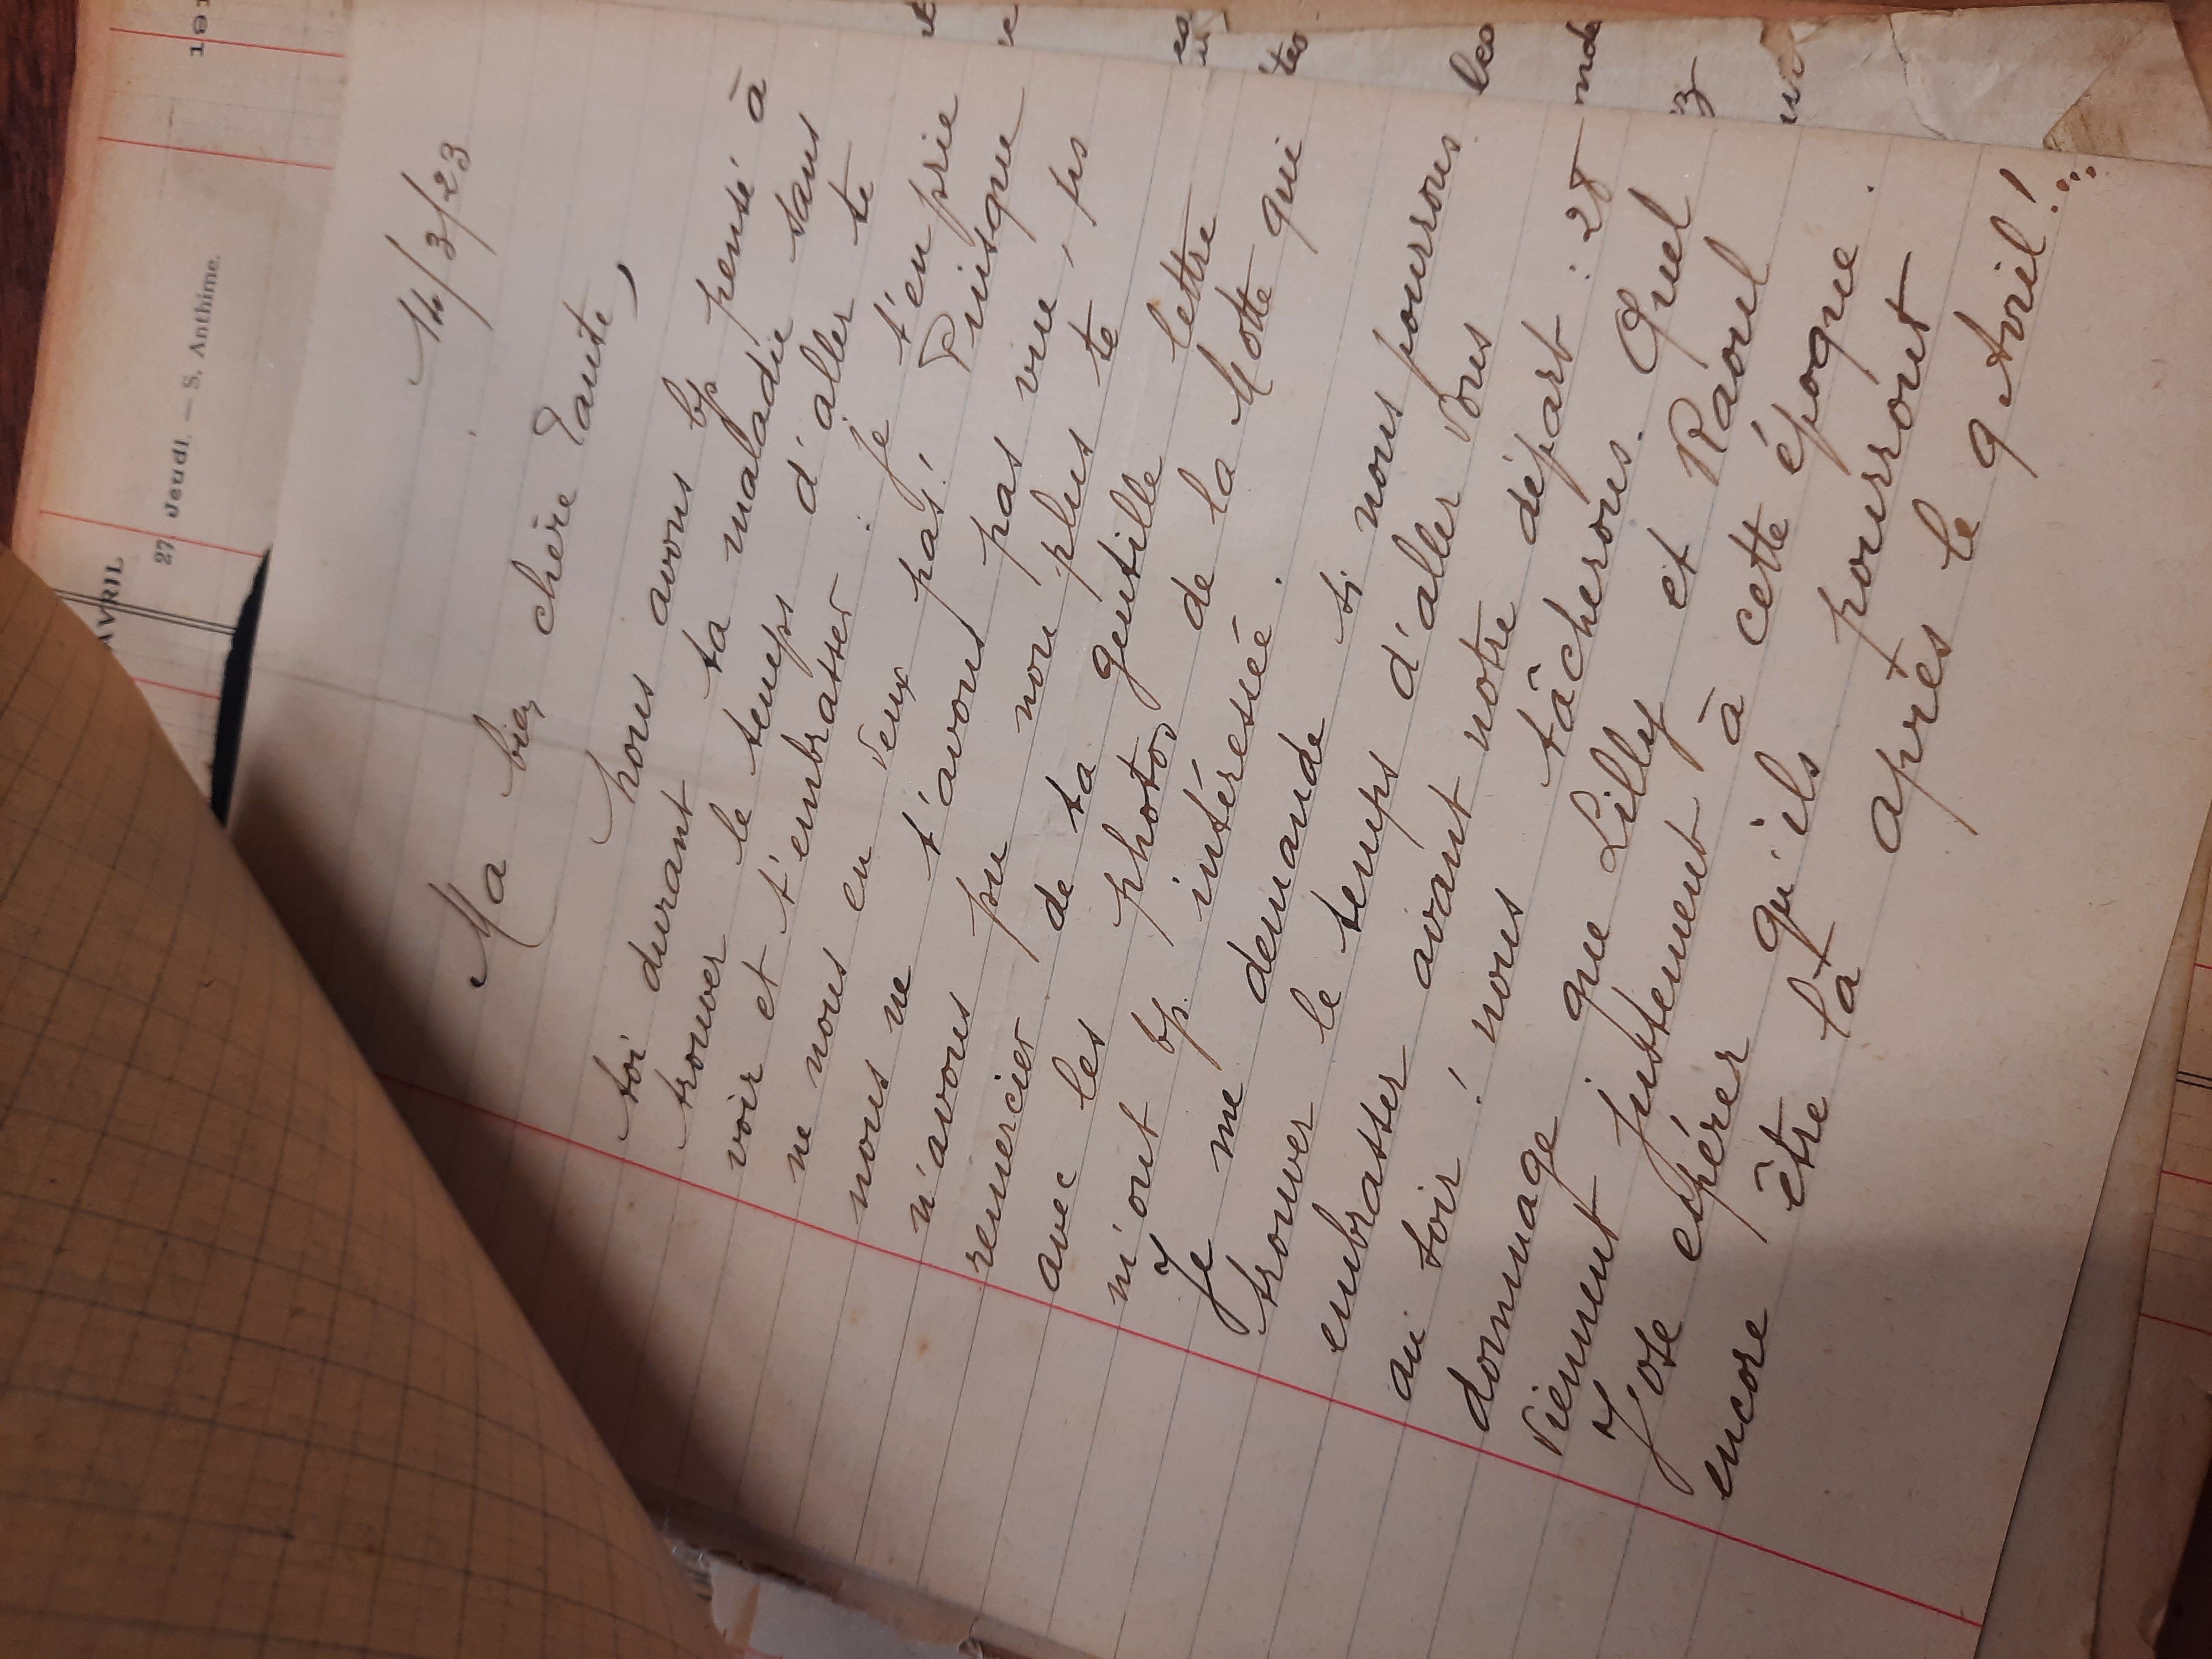 14/3/23
Ma bien chère Tante,
Nous avons bp pensé à
toi durant ta maladie sans
trouver le temps d'aller te
voir et t'embrasser : je t'en prie
ne nous en veux pas! Puisque
nous ne t'avons pas vue, ns
n'avons pu non plus te
remercier de ta gentille lettre
avec les photos de la Motte qui
m'ont bp. intéressée.
Je me demande si nous pourrons
trouver le temps d'aller vous
embrasser avant notre départ : 28
au soir! nous tâcherons. Quel
dommage que Lilly et Raoul
viennent justement à cette époque.
J'ose espérer qu'ils pourront
encore être là après le 9 Avril!
AVRIL
27 Jeudi. — S. Anthime.
191